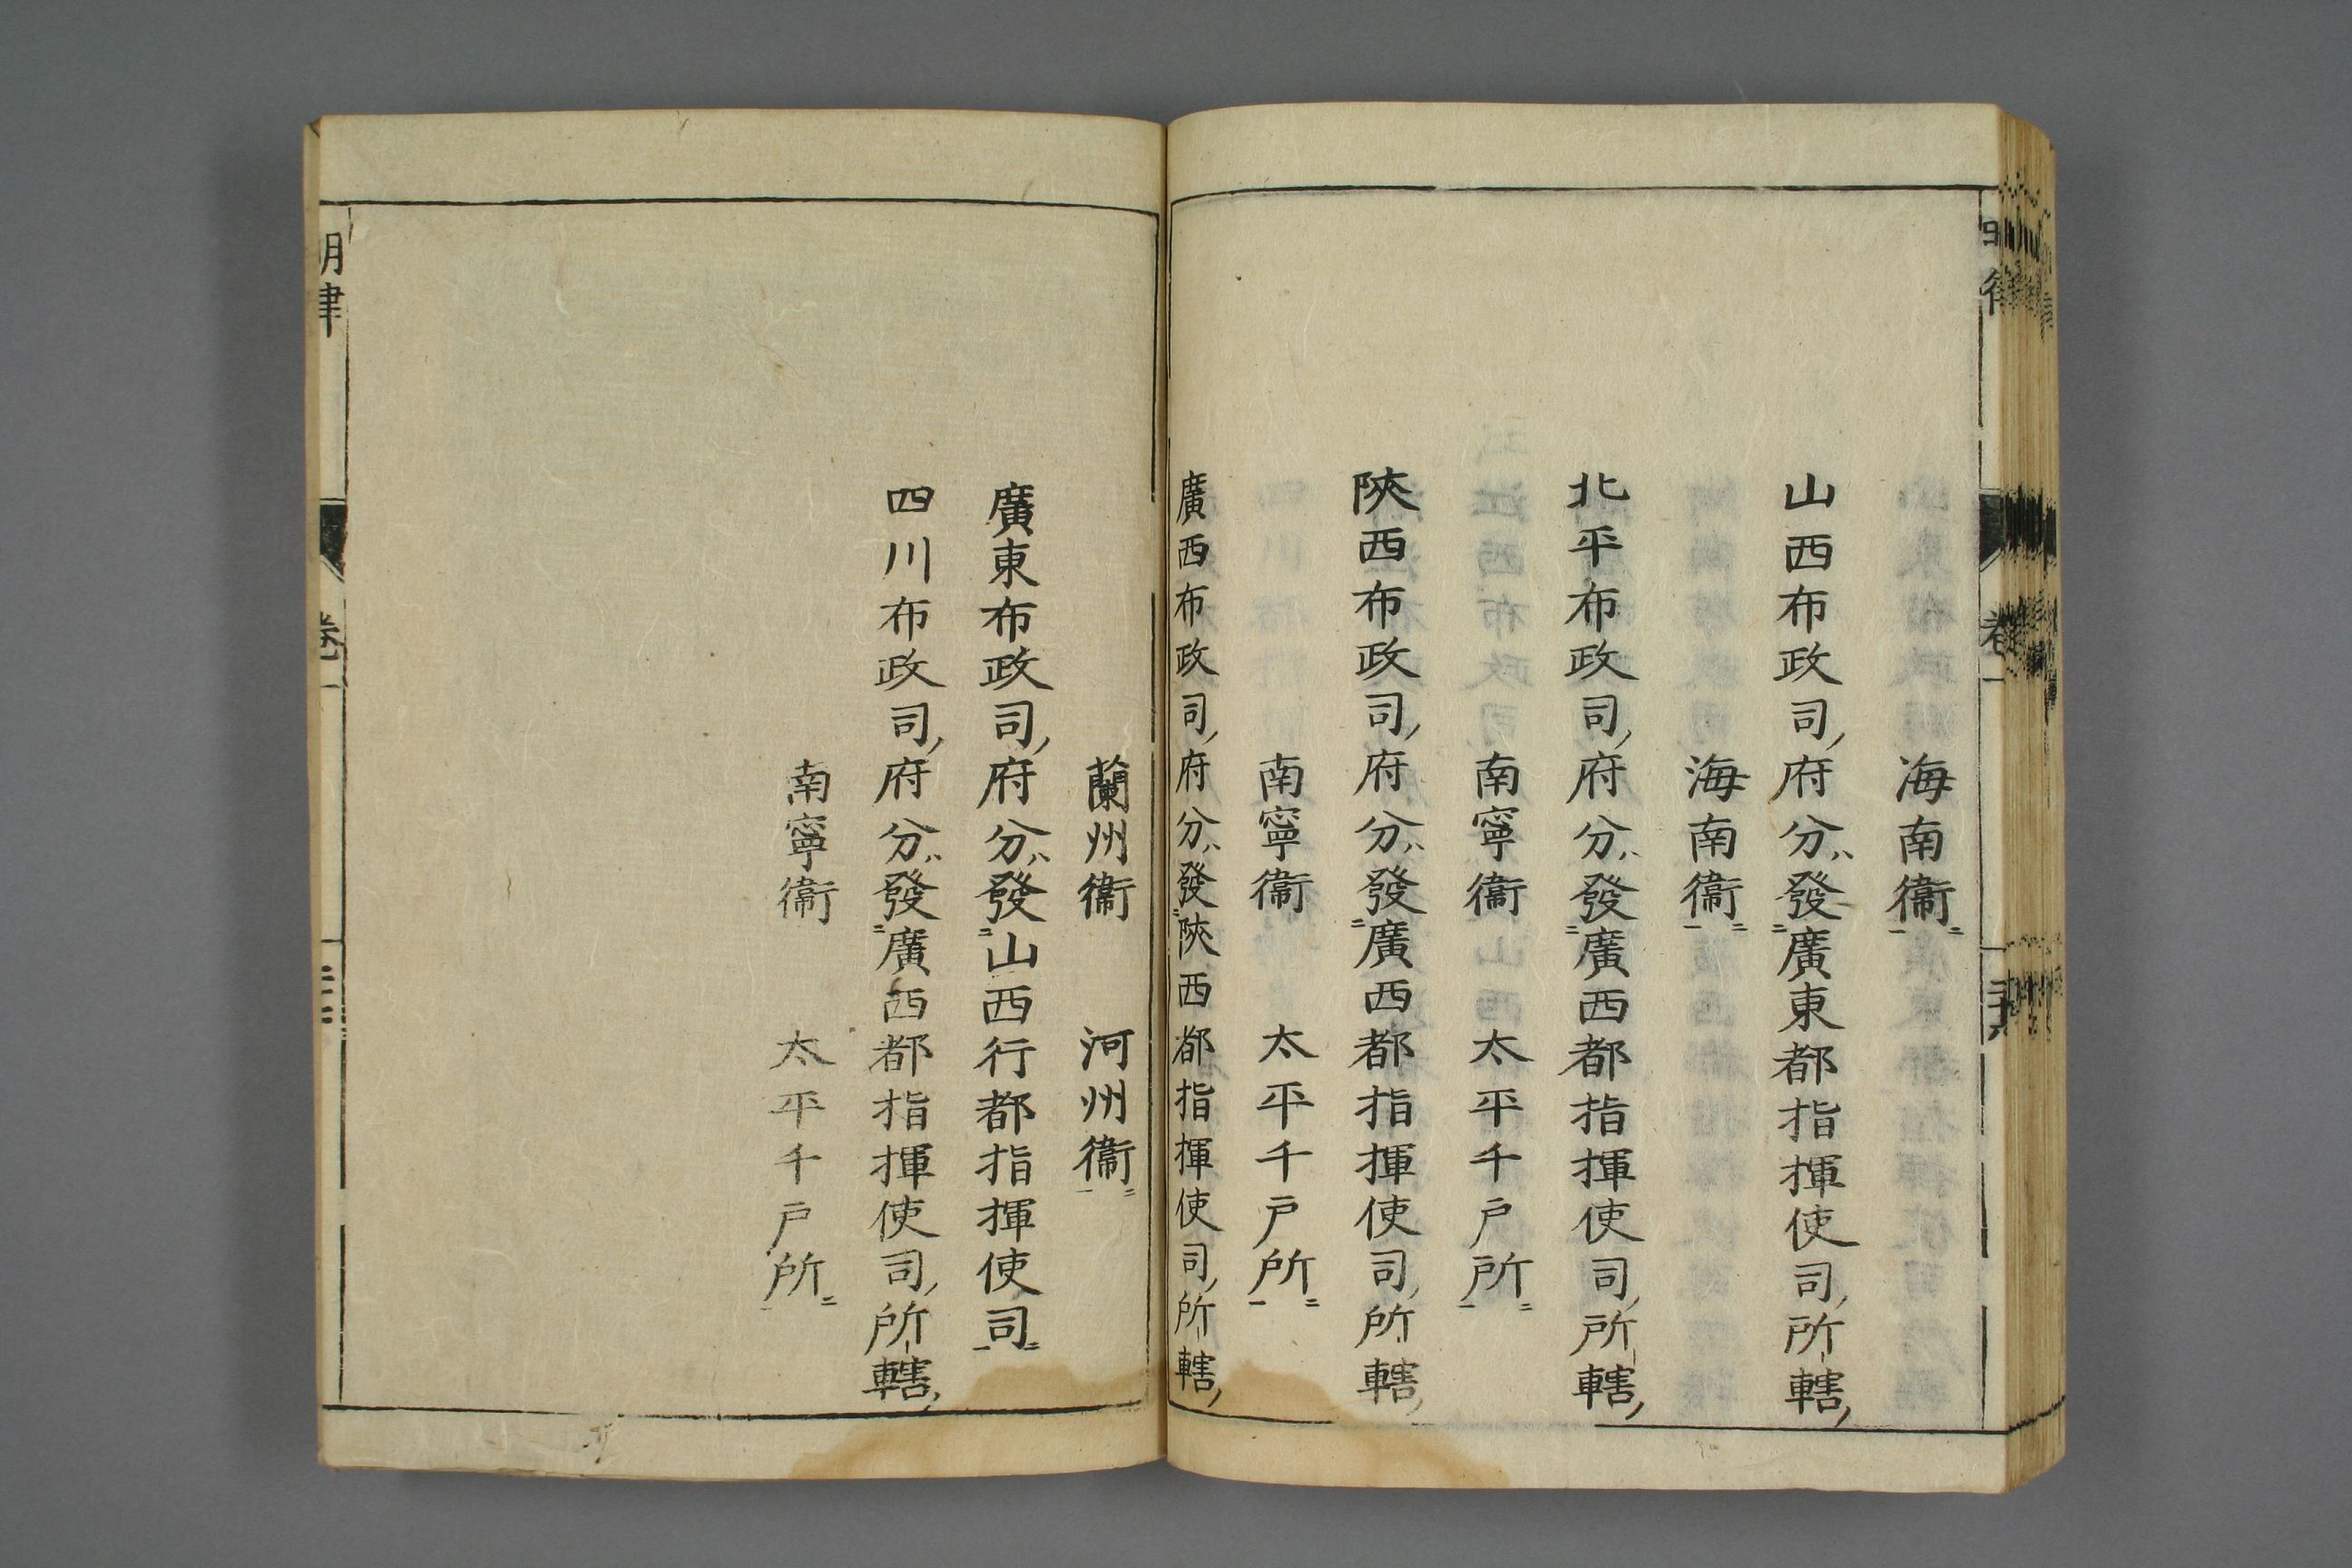 海南衞
山西布政司府分ハ發廣東都指揮使司所轄
海南衞
北平布政司府分ハ發廣西都指揮使司所轄
南寧衞 太平千戸所
陝西布政司府分ハ發廣西都指揮使司所轄
南寧衞 太平千戸所
廣西布政司府分ハ發陝西都指揮使司所轄
蘭州衞 河州衞
廣東布政司府分ハ發山西行都指揮使司
四川布政司府分ハ發廣西都指揮使司所轄
南寧衞 太平千戸所
明律 卷一